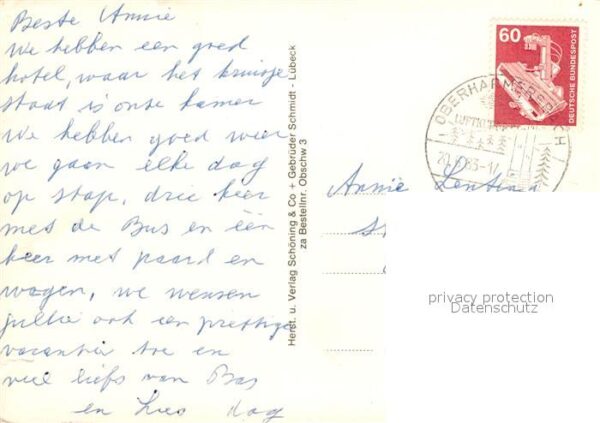 Beste Annie
We hebben een goed
hotel, waar het kruisje
staat is onze kamer
We hebben goed weer
we gaan elke dag
op stap, drie keer
met de Bus en één
keer met paard en
wagen, we wensen
jullie ook een prettige
vacantie toe en
veel liefs van Bas
en Lies dag
Herst. u. Verlag Schöning & Co + Gebrüder Schmidt - Lübeck
za Bestellnr. Obschw 3
60
DEUTSCHE BUNDESPOST
OBERHARMERSBACH
Annie
privacy protection
Datenschutz